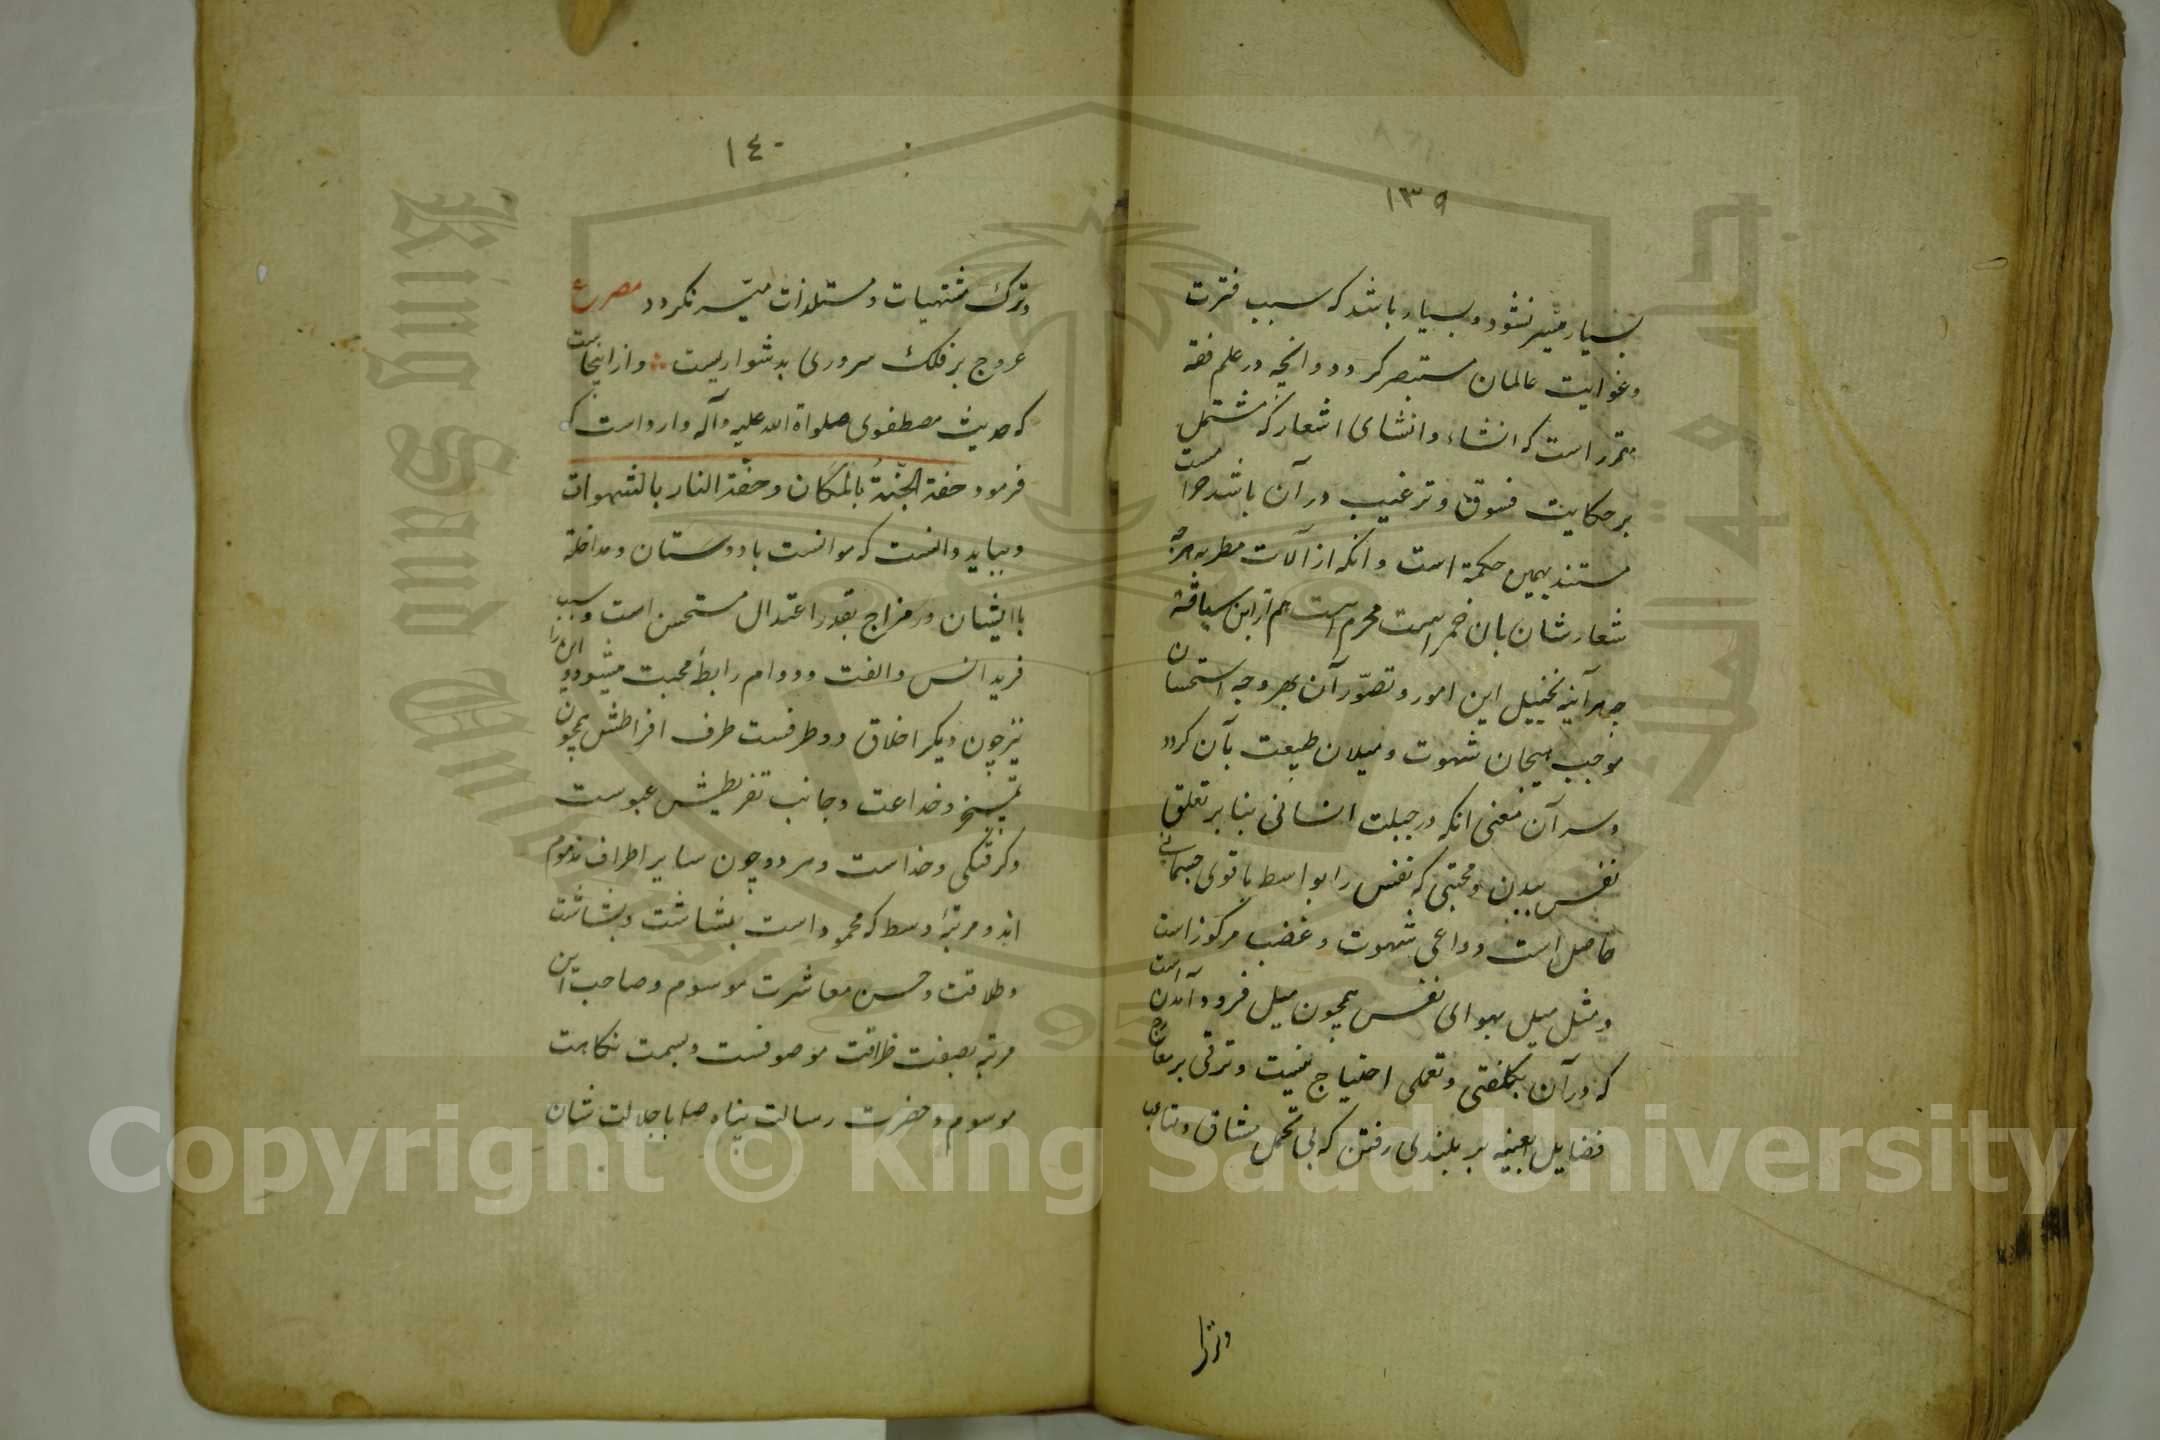 ١٣٩
بسیار میسر نشود و بسیار باشد که سبب فترت
و غوایت عالمان مستبصر کردد و آنچه در علم فقه
مقرر است که انشاء و انشای اشعار که مشتمل
بر حکایت فسوق و ترغیب در آن باشد حرامست
مستند بهمین حکمة است و انکه از آلات مطربه هرچه
شعار شان بان خمر است محرم است هم از این سیاقة
چهرآینه تخییل این امور و تصوّر آن بهر وجه استحسان
موجب هیجان شهوت و میلان طبیعت بآن کردد
و سر آن معنی انکه در جبلت انسانی بنا بر تعلق
نفس ببدن و محبتی که نفس را بواسطه با قوی جسمانی
حاصل است دواعی شهوت و غضب مرکوز است
و مثل میل بهوای نفس همچون میل فرود آمدن است
که در آن بکلفتی و تعملی احتیاج نیست و ترقی بر معارج
فضایل بعینه بر بلندی رفتن که بی تحمل مشاق و متاعب
وترک
١٤٠
و ترک مشتهیات و مستلذات میسّر نکردد مصرع
عروج بر فلک سروری بدشواریست و از اینجاست
که حدیث مصطفوی صلواة الله علیه وآله وارد است که
فرمود حفة الجنّةُ بالمکان و حفّة النار بالشهوات
و بباید دانست که موانست با دوستان و مداخلة
با ایشان در مزاج بقدر اعتدال مستحسن است و سبب
فرید انس و الفت و دوام رابطهٔ محبت میشود و این را
نیز چون دیکر اخلاق دو طرفست طرف افراطش همچون
تمسخر و خداعت و جانب تفریطش عبوست
و کرفتکی و خداست و هر دو چون سایر اطراف مذموم
اند و مرتبهٔ وسط که محمود است بشاشت و بشاشت
و طلاقت و حسن معاشرت موسوم و صاحب این
مرتبه بصفت ظرافت موصوفست و بسمت فکاهت
موسوم و حضرت رسالت پناه صلی با جلالت شان
Copyright © King Saud University